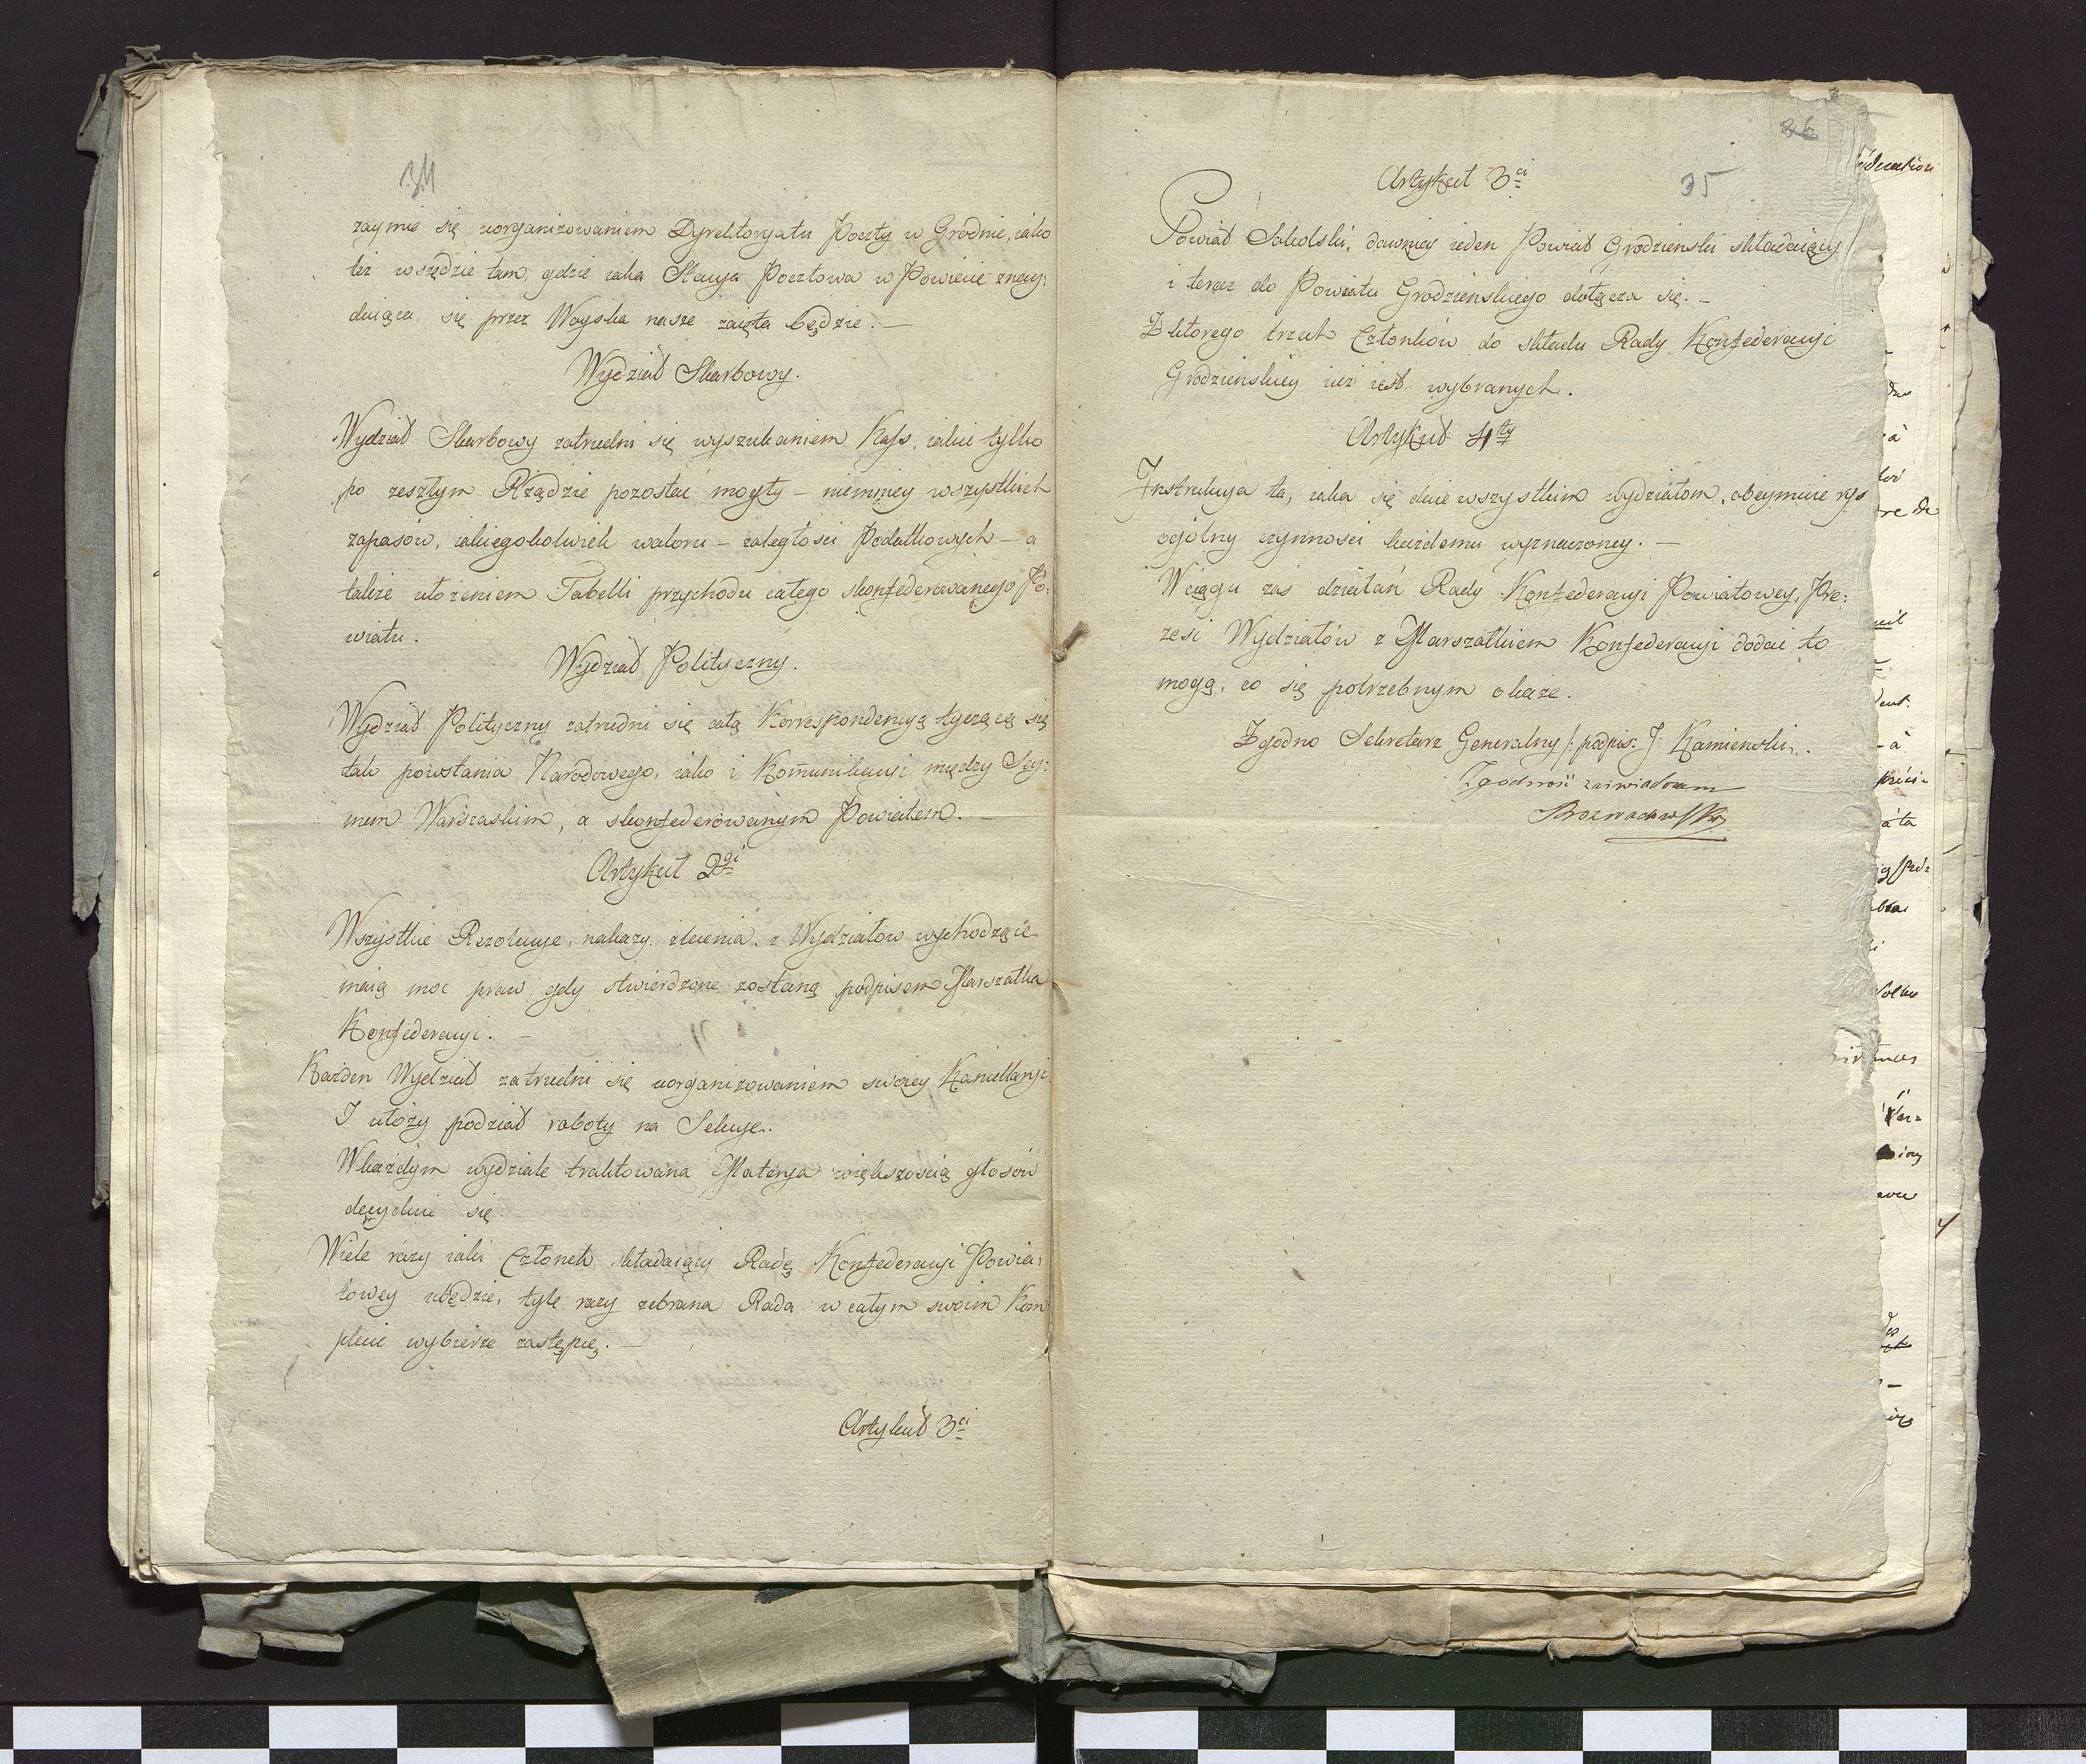 34
zaymie się uorganizowaniem Dyrektoryatu Poczty w Grodnie, iako
też wszędzie tam, gdzie iaka Stacya Pocztowa w Powiecie znay:
duiąca się przez Woyska nasze zaięta będzie. —
Wydział Skarbowy.
Wydział Skarbowy zatrudni się wyszukaniem Kass, iakie tylko
po zeszłym Rządzie pozostać mogły – niemniey wszystkich
zapasów, iakiegokolwiek waloru – zaległości Podatkowych – a
także ułożeniem Tabelli przychodu całego skonfederowanego Po:
wiatu.
Wydział Polityczny.
Wydział Polityczny zatrudni się całą Korrespondencyą tyczącą się
tak powstania Narodowego, iako i Kom̄unikacyi między Sey:
mem Warszaskim, a skonfederowanym Powiatem. —
Artykuł 2gi
Wszystkie Rezolucye, nakazy, zlecenia, z Wydziałów wychodzące
maią moc praw, gdy stwierdzone zostaną podpisem Marszałka
Konfederacyi. —
Każden Wydział zatrudni się uorganizowaniem swoiey Kancellaryi
I ułoży podział roboty na Sekcye.
Wkażdym wydziale traktowana Materya większością głosów
decyduie się.
Wiele razy iaki Członek składaiący Radę Konfederacyi Powia:
towey ubędzie, tyle razy zebrana Rada w całym swoim Kom
plecie wybierze zastępcę. —
Artykuł 3ci
26
35
Artykuł 3ci
Powiat Sokolski, dawniey ieden Powiat Grodzienski składaiący
i teraz do Powiatu Grodzienskiego dołącza się. –
Z którego trzech Członków do składu Rady Konfederacyi
Grodzienskiey iuż iest wybranych.
Artykuł 4ty
Instrukcya ta, iaka się daie wszystkim wydziałom, obeymuie rys
ogólny czynności każdemu wyznaczoney. —
Wciągu zaś działań Rady Konfederacyi Powiatowey, Pre:
zesi Wydziałów z Marszałkiem Konfederacyi dodać to
mogą, co się potrzebnym okaże.
Zgodno Sekretarz Generalny /: podpis: J: Kamienski.
Zgodność zaświadczam